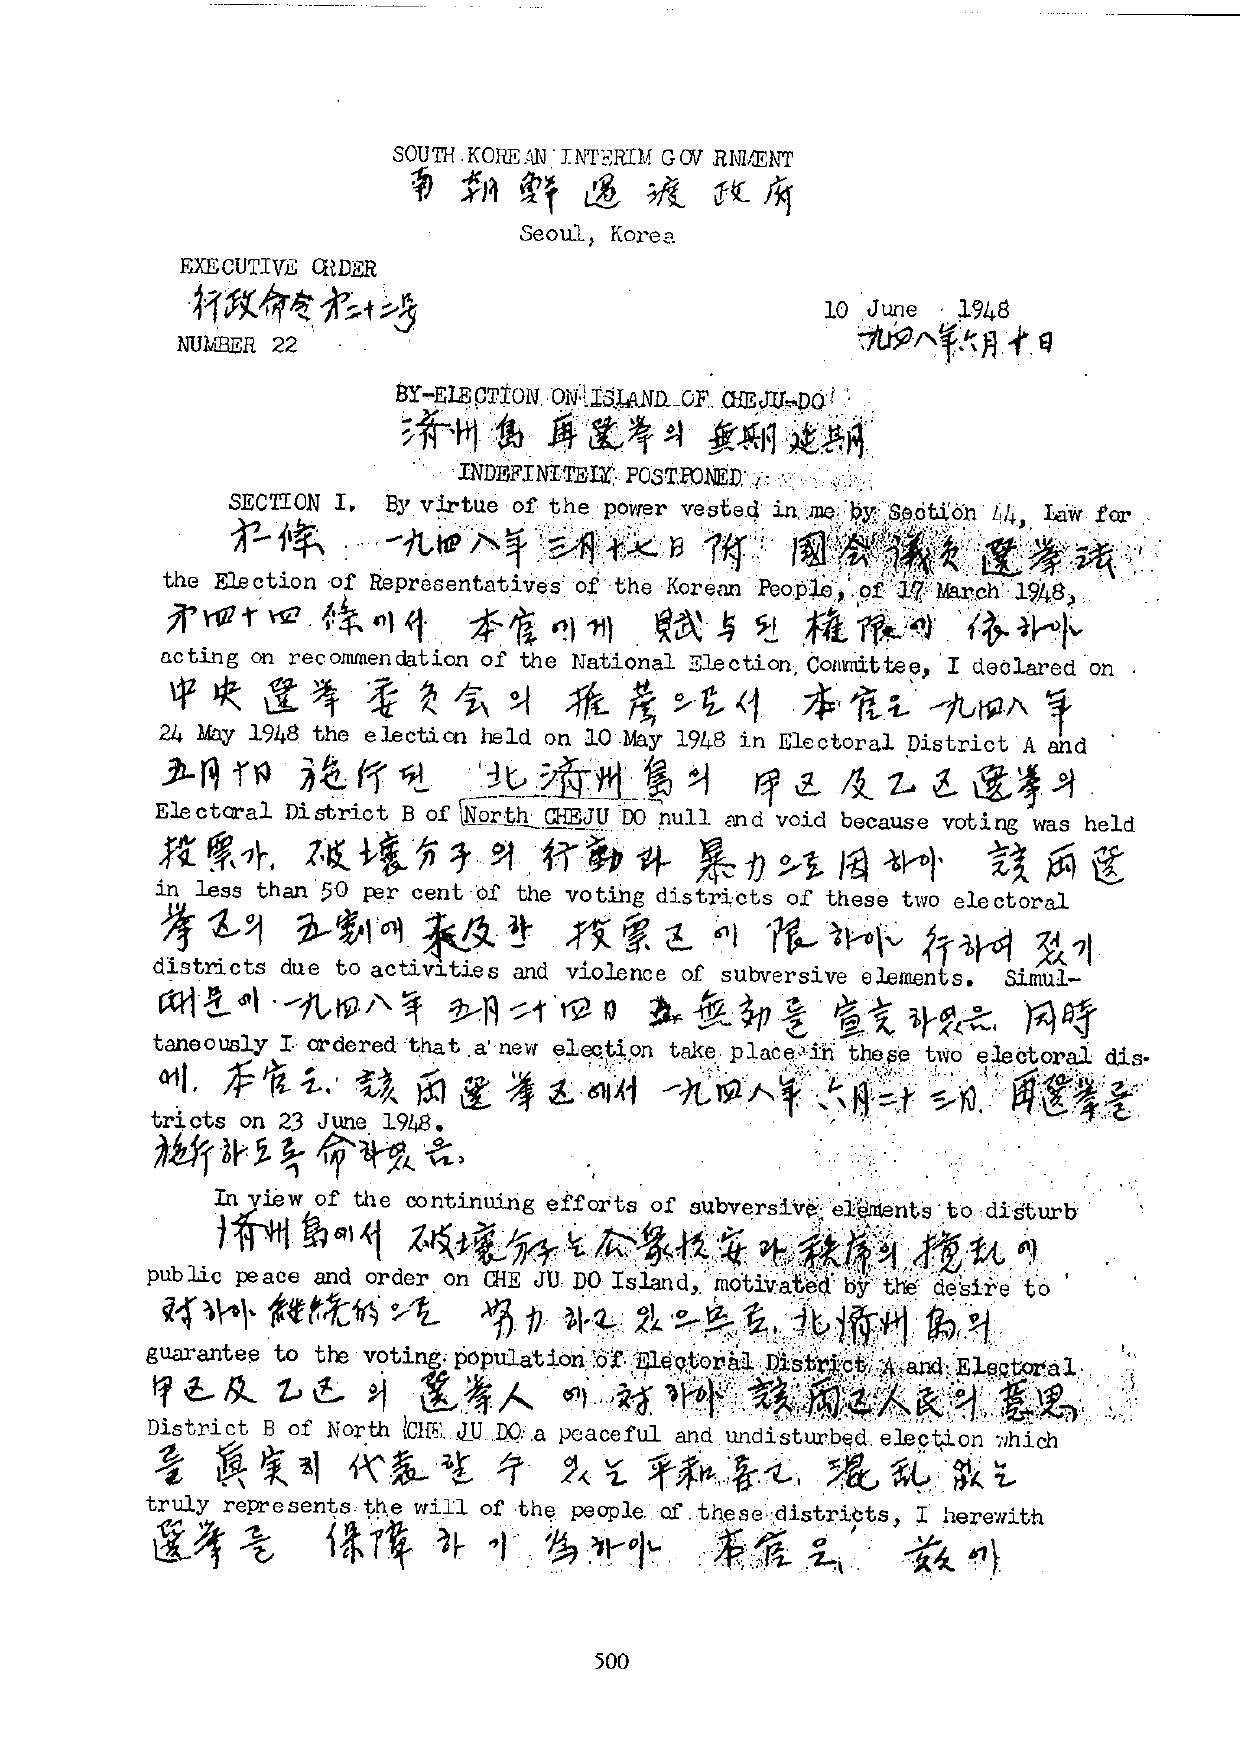 SOUTH KOREAN INTERIM GOV RNMENT
南朝鮮過渡政府
Seoul, Korea
EXECUTIVE ORDER
行政命令第二十二号
NUMBER 22
10 June 1948
一九四八年六月十日
BY-ELECTION ON ISLAND OF CHEJU-DO
済州島 再選挙의 無期延期
INDEFINITELY POSTPONED
SECTION I. By virtue of the power vested in me by Section 44, Law for
第一條 一九四八年三月十七日附 國会議員選挙法
the Election of Representatives of the Korean People, of 17 March 1948,
第四十四條에서 本官에게 賦与된 權限에 依하야
acting on recommendation of the National Election Committee, I declared on
中央選挙委員会의 推薦으로서 本官은 一九四八年
24 May 1948 the election held on 10 May 1948 in Electoral District A and
五月十日 施行된 北済州島의 甲区及乙区選挙의
Electoral District B of North CHEJU DO null and void because voting was held
投票가, 破壞分子의 行動과 暴力으로因하야 該両選
in less than 50 per cent of the voting districts of these two electoral
挙区의 五割에未及한 投票区에 限하야 行하여졌기
districts due to activities and violence of subversive elements. Simul-
때문에 一九四八年 五月二十四日 無効를 宣言하였음. 同時
taneously I ordered that a new election take place in these two electoral dis-
에, 本官은, 該両選挙区에서 一九四八年 六月二十三日, 再選挙를
tricts on 23 June 1948.
施行하도록 命하였음.
In view of the continuing efforts of subversive elements to disturb
済州島에서 破壞分子는 公衆의 安과 秩序의 撹乱에
public peace and order on CHE JU DO Island, motivated by the desire to
対하야 継続的으로 努力하고 있으므로, 北済州島의
guarantee to the voting population of Electoral District A and Electoral
甲区及乙区의 選挙人에 対하야 該両区人民의 意思
District B of North CHE JU DO a peaceful and undisturbed election which
를 眞実히 代表할 수 있는 平和 混乱 없는
truly represents the will of the people of these districts, I herewith
選挙를 保障하기 為하야 本官은, 玆에
500